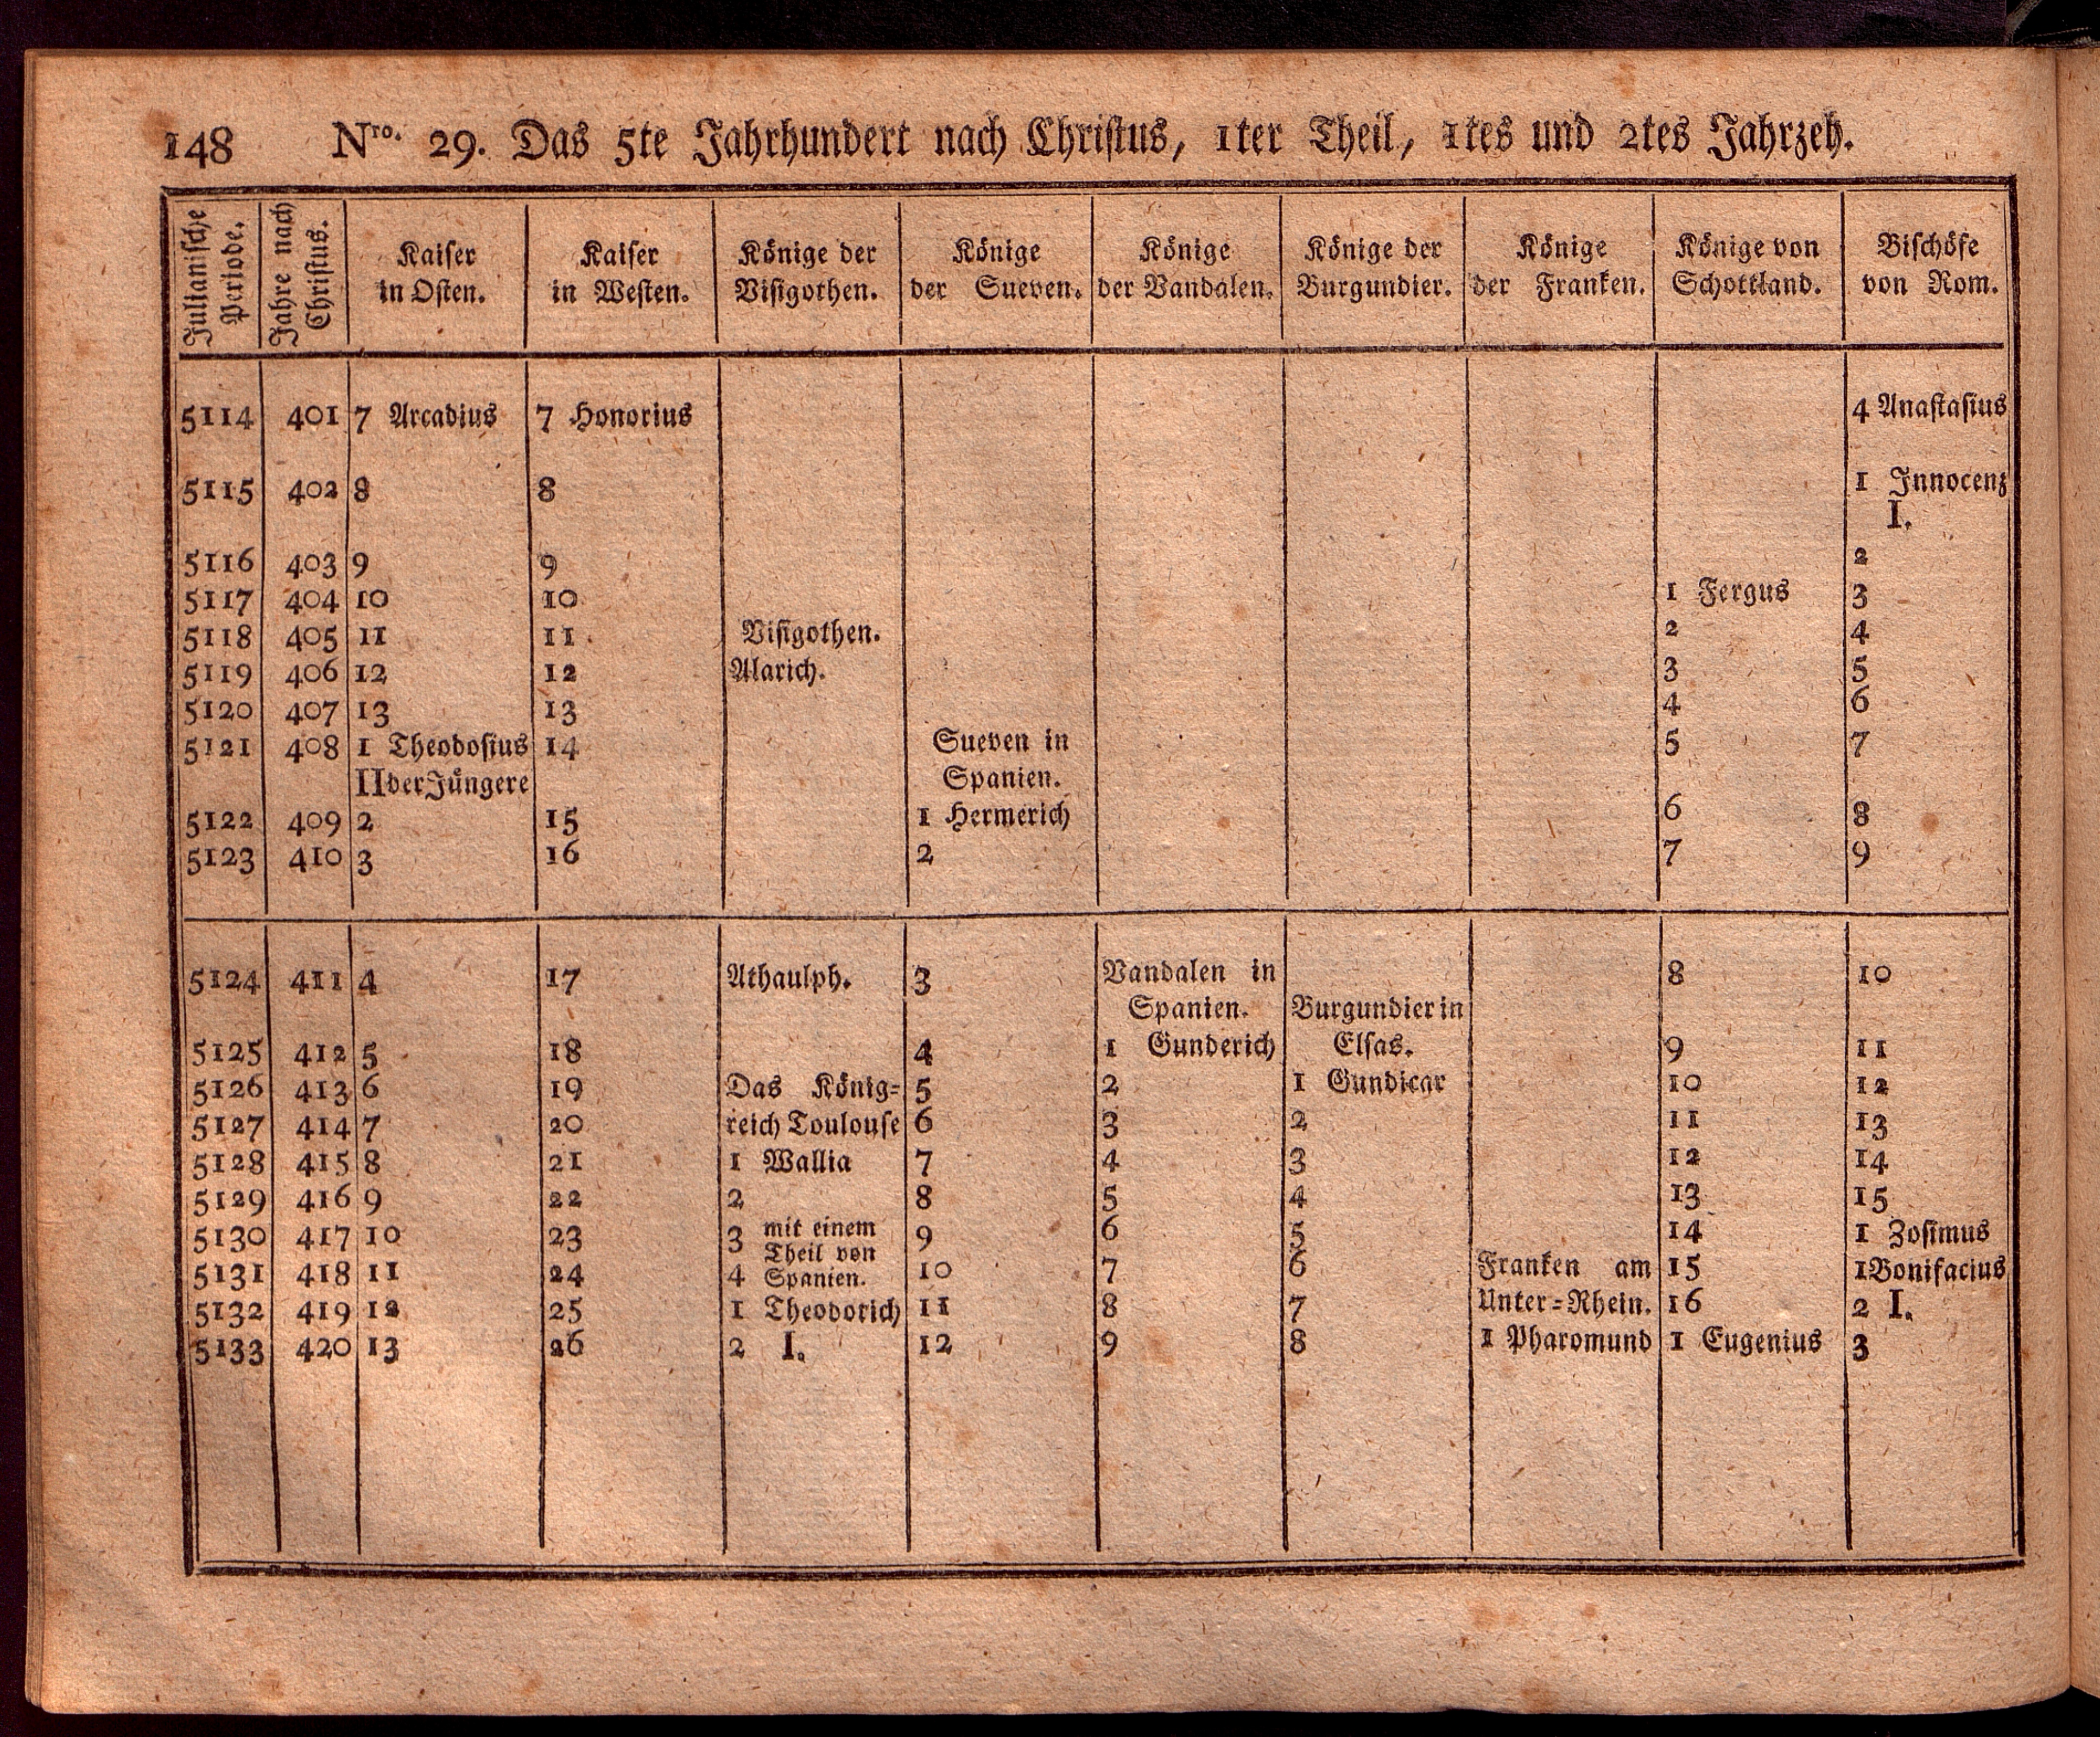 148 Nro. 29. Das 5te Jahrhundert nach Christus, 1ter Theil, 1tes und 2tes Jahrzeh.
Julianische Periode. | Jahre nach Christus. | Kaiser in Osten. | Kaiser in Westen. | Könige der Visigothen. | Könige der Sueven. | Könige der Vandalen. | Könige der Burgundier. | Könige der Franken. | Könige von Schottland. | Bischöfe von Rom.
5114 401 7 Arcadius 7 Honorius 4 Anastasius
5115 402 8 8 1 Innocenz
I.
5116 403 9 9 2
5117 404 10 10 1 Fergus 3
5118 405 11 11 Visigothen. 2 4
5119 406 12 12 Alarich. 3 5
5120 407 13 13 4 6
5121 408 1 Theodosius 14 Sueven in 5 7
II der Jüngere Spanien.
5122 409 2 15 1 Hermerich 6 8
5123 410 3 16 2 7 9
5124 411 4 17 Athaulph. 3 Vandalen in 8 10
Spanien. Burgundier in
5125 412 5 18 4 1 Gunderich Elsas. 9 11
5126 413 6 19 Das König= 5 2 1 Gundicar 10 12
5127 414 7 20 reich Toulouse 6 3 2 11 13
5128 415 8 21 1 Wallia 7 4 3 12 14
5129 416 9 22 2 8 5 4 13 15
5130 417 10 23 3 mit einem 9 6 5 14 1 Zosimus
Theil von
5131 418 11 24 4 Spanien. 10 7 6 Franken am 15 1 Bonifacius
5132 419 12 25 1 Theodorich 11 8 7 Unter=Rhein. 16 2 I.
5133 420 13 26 2 I. 12 9 8 1 Pharomund 1 Eugenius 3